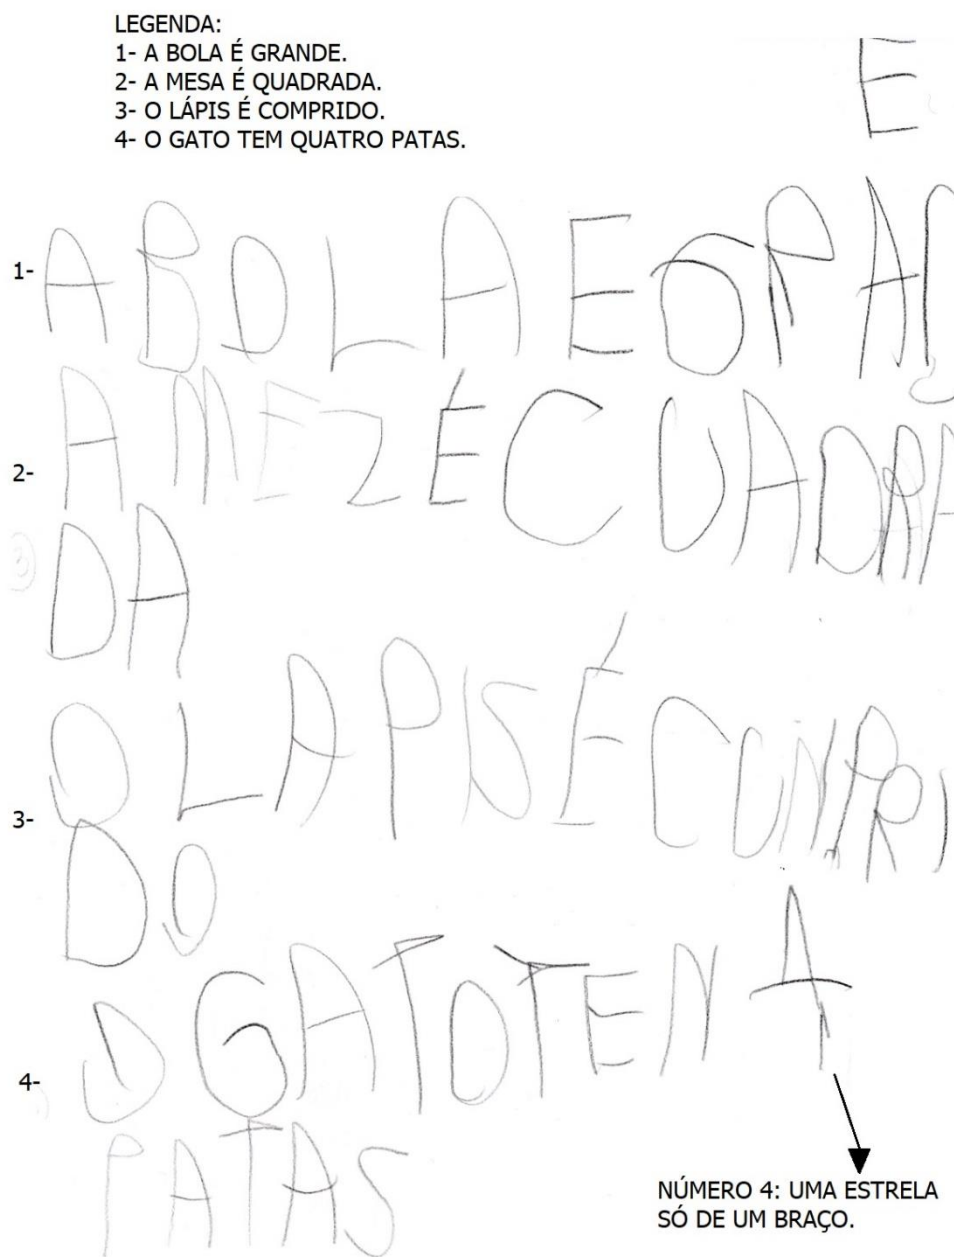 LEGENDA:
1- A BOLA É GRANDE.
2- A MESA É QUADRADA.
3- O LÁPIS É COMPRIDO.
4- O GATO TEM QUATRO PATAS.
E
1- A BOLA E GRAD
2- A MEZÉ CUADRA
DA
3- O LAPIS É CONPRI
DO
4- O GATO TEN 4
PATAS
NÚMERO 4: UMA ESTRELA
SÓ DE UM BRAÇO.